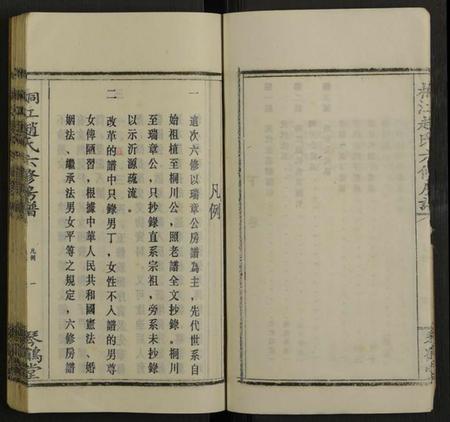 凡例
一 這次六修以瑞章公房譜為主，先代世系自
始祖植至桐川公，照老譜全文抄錄。桐川
至瑞章公，只抄錄直系宗祖，旁系未抄錄
以示沂源疏流。
二 改革的譜中只錄男丁，女性不入譜的男尊
女俾陋習，根據中華人民共和國憲法、婚
姻法、繼承法男女平等之規定，六修房譜
桐江趙氏六修房譜
凡例
一
琴鶴堂
桐江趙氏六修房譜